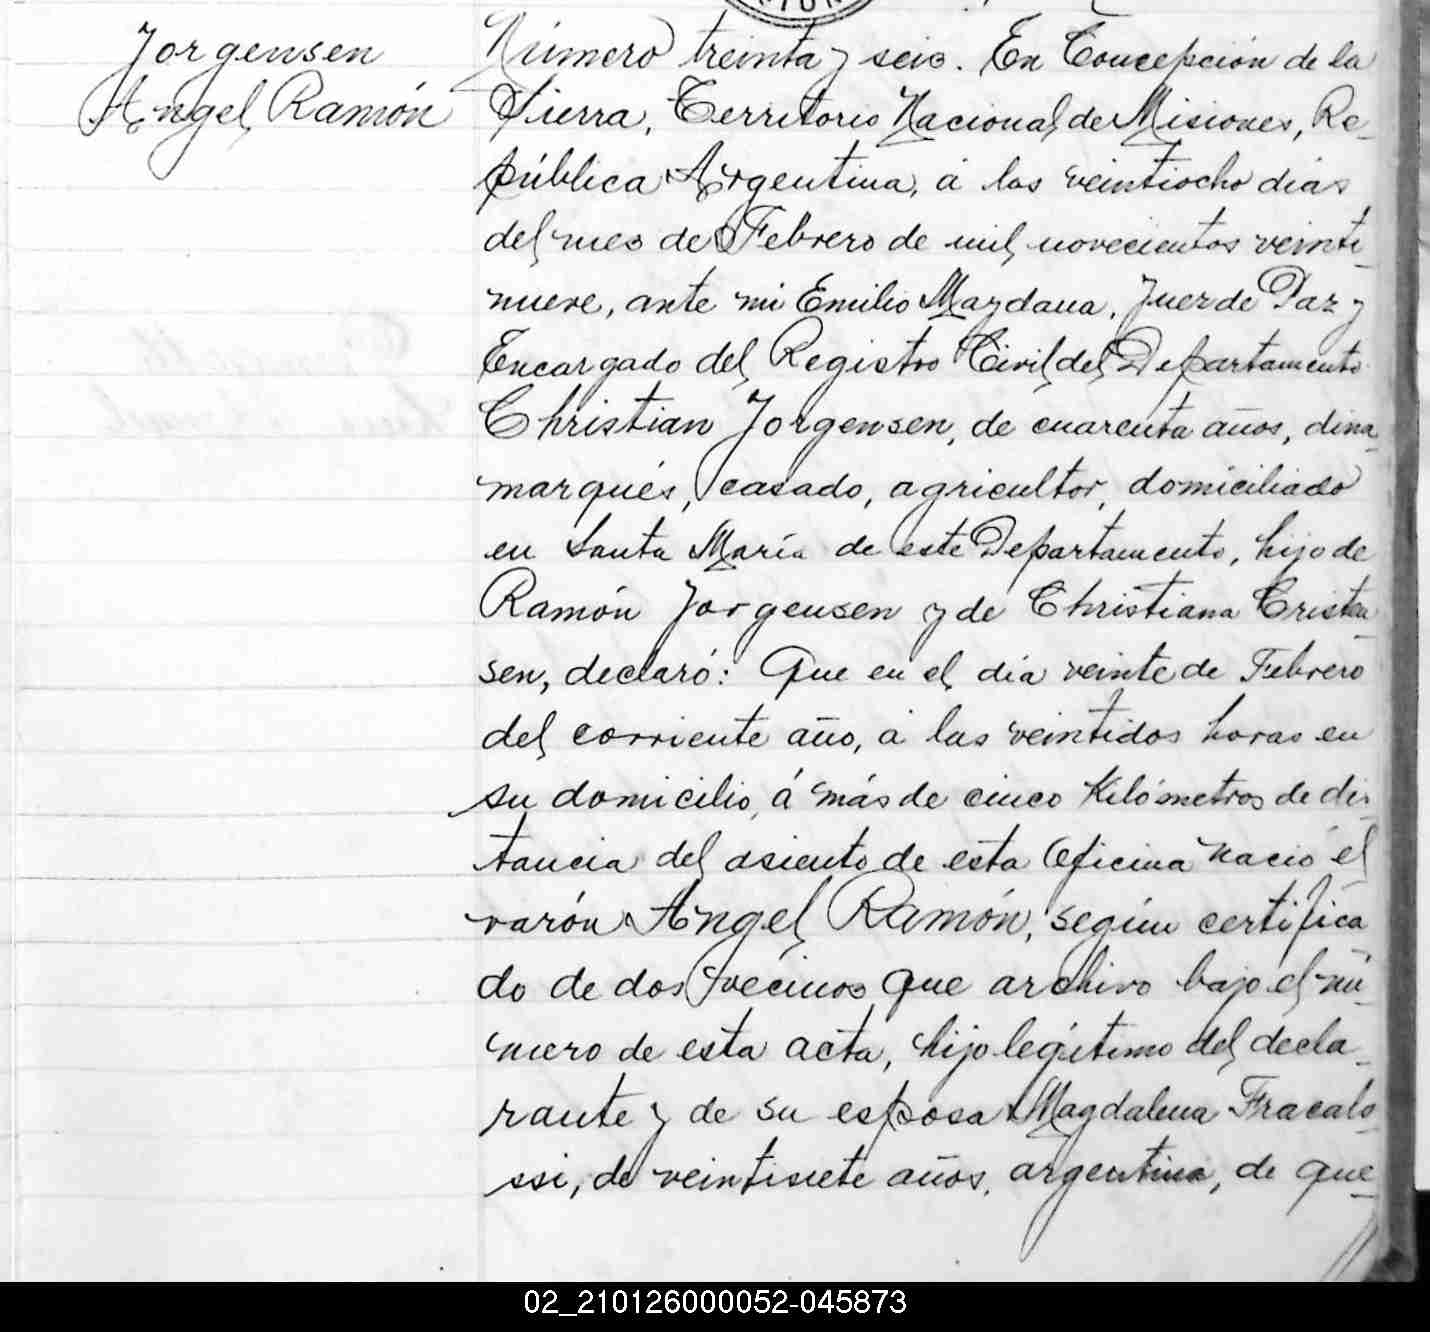 Jorgensen
Angel Ramón
Número treinta y seis. En Concepción de la
Sierra, Territorio Nacional de Misiones, Re-
pública Argentina, á los veintiocho dias
del mes de Febrero de mil novecientos veinti-
nueve, ante mi Emilio Maydana, Juez de Paz y
Encargado del Registro Civil del Departamento
Christian Jorgensen, de cuarenta años, dina-
marqués, casado, agricultor, domiciliado
en Santa María de este Departamento, hijo de
Ramón Jorgensen y de Christiana Cristen-
sen, declaró: Que en el día veinte de Febrero
del corriente año, á las veintidos horas en
su domicilio, á más de cinco Kilómetros de dis-
tancia del asiento de esta Oficina nació el
varón Angel Ramón, según certifica
do de dos vecinos que archivo bajo el nú-
mero de esta acta, hijo legítimo del decla-
rante y de su esposa Magdalena Fracalo-
ssi, de veintisiete años, argentina, de que-
02_210126000052-045873